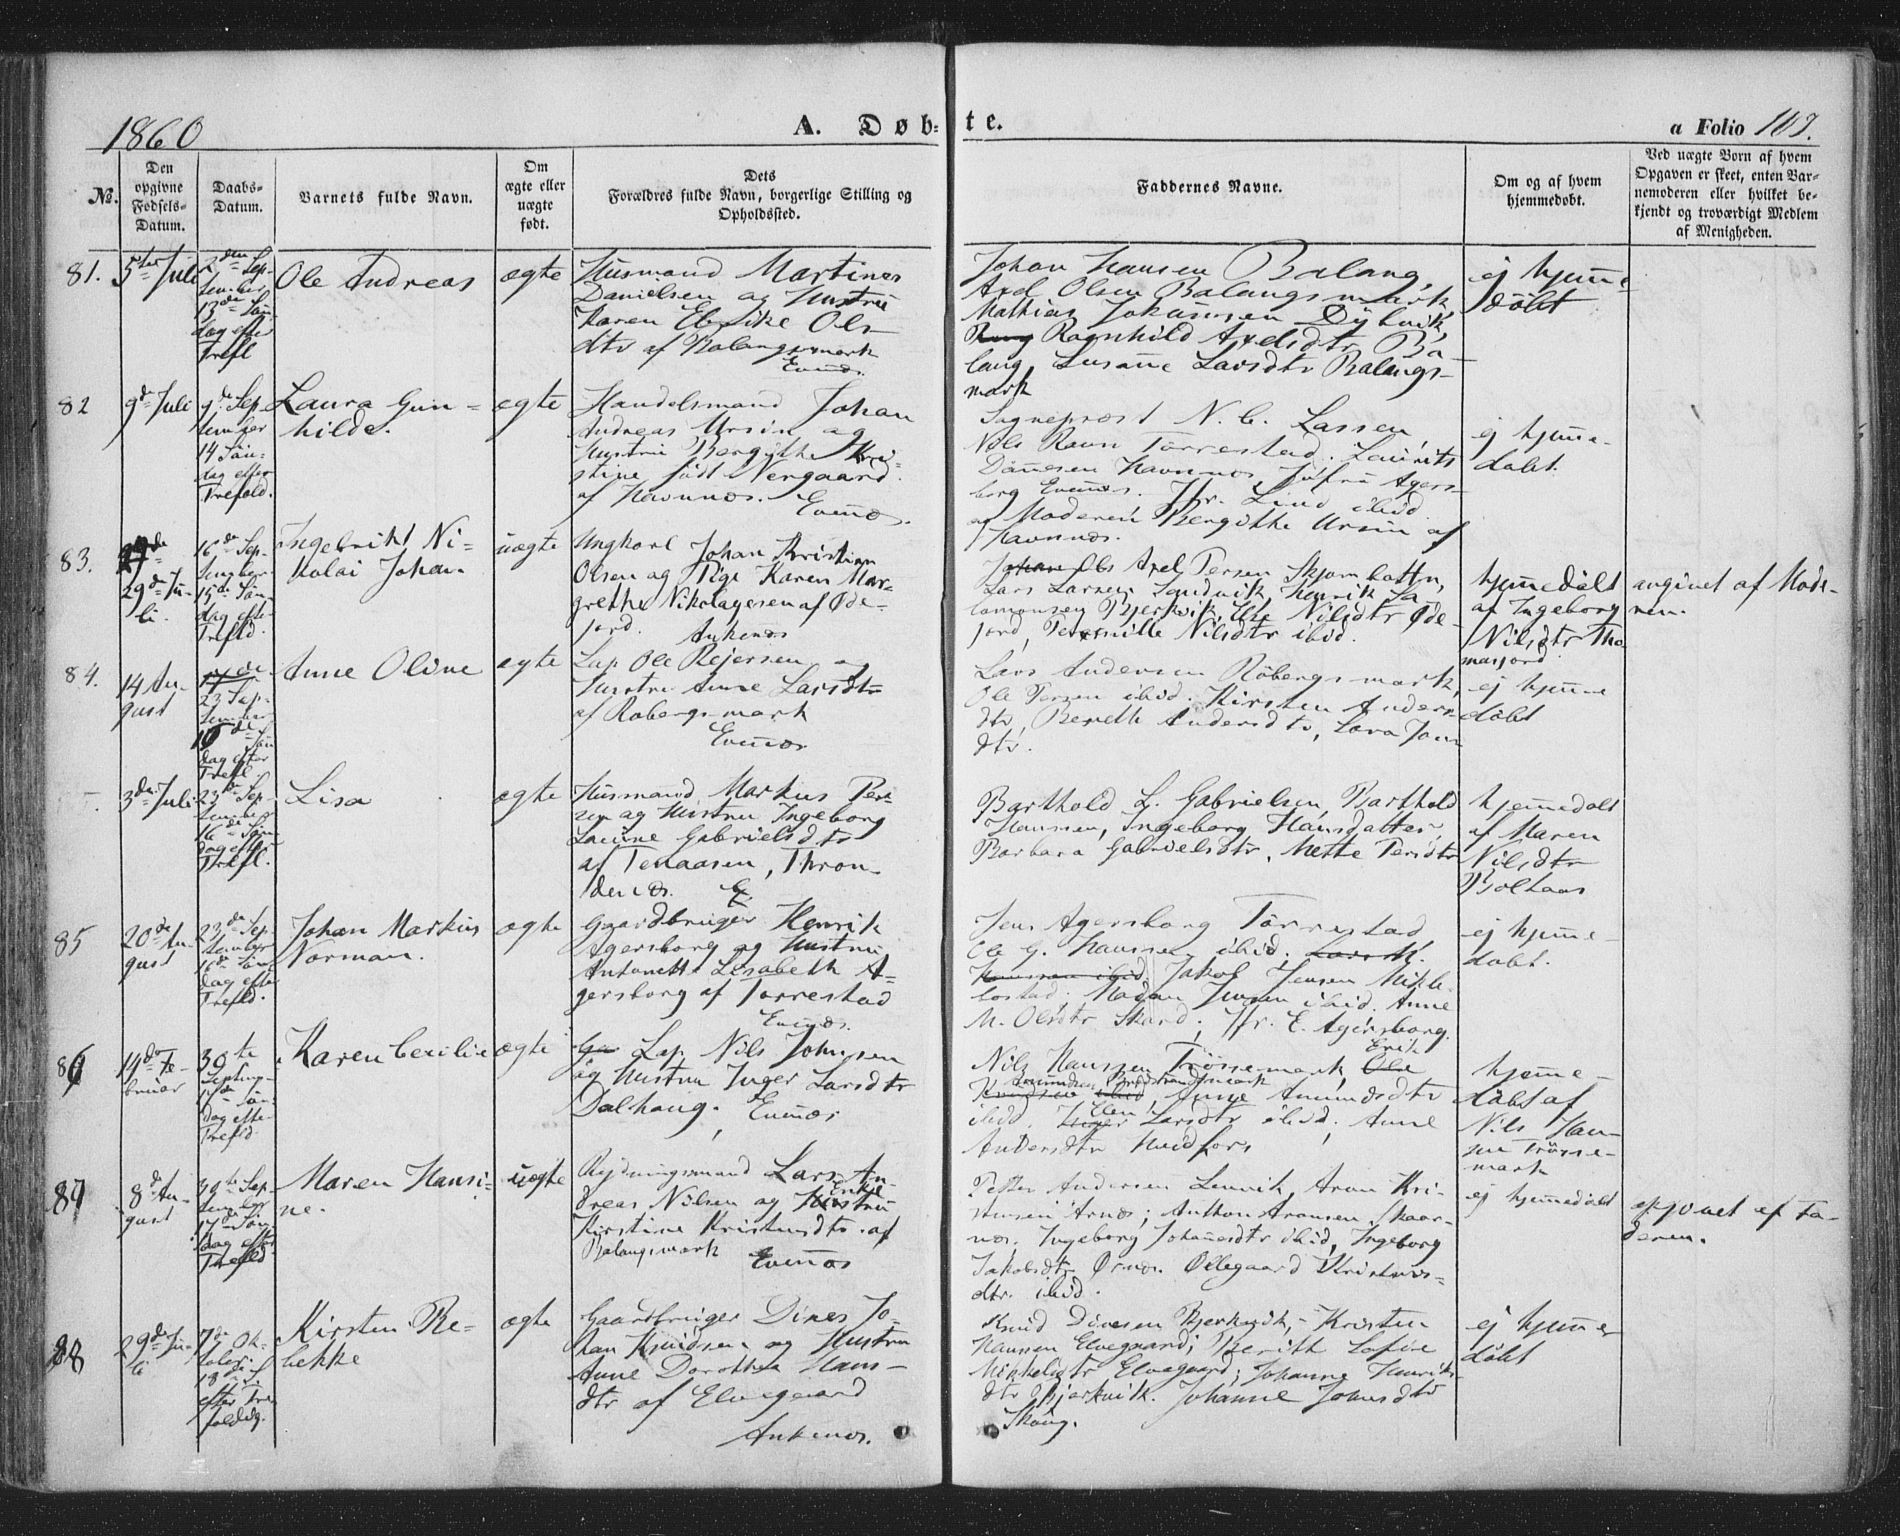 1860
A. Døb-
te.
a Folio 107.
No.
Den
opgivne
Fødsels-
Datum.
Daabs-
Datum.
Barnets fulde Navn.
Om
ægte eller
uægte
født.
Dets
Forældres fulde Navn, borgerlige Stilling og
Opholdssted.
Faddernes Navne.
Om og af hvem
hjemmedøbt.
Ved uægte Børn af hvem
Opgaven er skeet, enten Bar-
nemoderen eller hvilket be-
kjendt og troværdigt Medlem
af Menigheden.
81.
5te Juli
2den Sep-
tember
13de Søn-
dag efter
Trefl
Ole Andreas
ægte
Husmand Martines
Danielsen og Hustru
Karen Elrike Ols-
dtr af Balangsmark
Evenæs.
Johan Hansen Balang,
Axel Olsen Balangsmark,
Mathias Johannsen Dybvik,
Ragnhild Axelsdtr Ba-
lang, Susanne Larsdtr Balangs-
mark
ej hjemme-
døbt
82
9de Juli
9de Sep-
tember
14 Søn-
dag efter
Trefold.
Laura Gun-
hilde.
ægte
Handelsmand Johan
Andreas Ursin og
Hustru Bergithe Kri-
stine født Nergaard
af Havnnæs. Evenæs.
Sognepræst N. C. Lassen
Nils Ravn Tørrestad. Laurits
Dannesen Havnnæs, Jufru Agers-
borg Evenæs. Jfr. Lind ibid
og Moderen Bergithe Ursin af
Havnnæs.
ej hjemme-
døbt.
83.
29de Ju-
li.
16de Sep-
tember
15de Søn-
dag efter
Trefld.
Ingebrikt Ni-
kolai Johan.
uægte
Ungkarl Johan Kristian
Olsen og Pige Karen Mar-
grethe Nikolaysen af Øde-
jord. Ankenæs
Axel Persen Skjombotten,
Lars Larsen Sandvik, Henrik Sa-
lomonsen Bjerkvik, Else Nilsdtr Øde-
jord, Pernille Nilsdtr ibid.
hjemmedøbt
af Ingeborg
Nilsdtr Tho-
masjord
angivet af Mode-
ren.
84.
14 Au-
gust
17de
23 Sep-
tember
16de Søn
dag efter
Trefl
Anne Oline
ægte
Lap Ole Rejersen og
Hustru Anne Larsdtr
af Robergsmark
Evenæs
Lars Andersen Röbergsmark,
Ole Persen ibid. Kirsten Anders-
dtr, Bereth Andersdtr, Lava Jons
dtr.
ej hjemme
døbt
3de Juli
23de Sep-
tember
16de Søn
dag efter
Trefl.
Lisa
ægte
Husmand Markus Per-
sen og Hustru Ingeborg
Laurine Gabrielsdtr
af Tenaasen, Thron-
denæs.
Barthold L. Gabrielsen, Barthold
Hanssen, Ingeborg Hansdatter,
Barbara Gabrielsdtr, Mette Persdtr
hjemmedøbt
af Maren
Nilsdtr
Bolhaas
85
20de Au-
gust
23de Sep
tember
16de Søn
dag efter
Trefld.
Johan Markus
Norman.
ægte
Gaardbruger Henrik
Agersborg og Hustru
Antonette Lisabeth A-
gersborg af Tørrestad
Evenæs.
Jens Agersborg Tørrestad
Ole G. Hanssen ibid, Lars M.
Hanssen ibid Jakob Jensen Mikle-
bostad, Madam Jensen ibid. Anne
M. Olsdtr Skard; Jfr. E. Agersborg.
ej hjemme-
døbt.
86
14de Fe-
bruar
30te
Septemb-
17de Søn-
dag efter
Trefld
Karen Cecilie
ægte
Lap Nils Johnsen
og Hustru Inger Larsdtr
Dalhaug, Evenæs
Nils Hanssen Trössemark, Ole Erik
Knudsen ibid, Anne Amundsdtr
ibid, Inger Elen Larsdtr ibid, Anne
Andersdtr Hvidfors
hjemme-
døbt af
Nils Han-
sen Trösse-
mark
87
8de Au-
gust
30te Sep-
tember
17de Søn-
dag efter
Trefld
Maren Hansi-
ne.
uægte
Rydningsmand Lars An-
dreas Nilsen og Hustru Enke
Kirstine Kristensdtr af
Balangsmark
Evenæs
Petter Andersen Lenvik, Aron Kri-
stensen Arnæs; Anthon Aronsen Skaar-
næs. Ingeborg Johannesdtr ibid, Ingeborg
Jakobsdtr Ørnæs. Ollegaard Kristens-
dtr. ibid.
ej hjemmedøbt
opgivet af Fa-
deren.
88
29de Ju-
li
7de Ok-
tober
18de S.
efter Tre-
foldig.
Kirsten Re-
bekke
ægte
Gaardbruger Dines Jo-
han Knudsen og Hustru
Anne Dorothea Hans-
dtr af Elvegaard
Ankenæs.
Knud Dinesen Bjerkvik, Kristen
Hansen Elvegaard; Berith Sofie
Mikkelsdtr Elvegaard; Johanne Henriks-
dtr Bjerkvik. Johanne Johnsdtr
Skoug.
ej hjemme
døbt